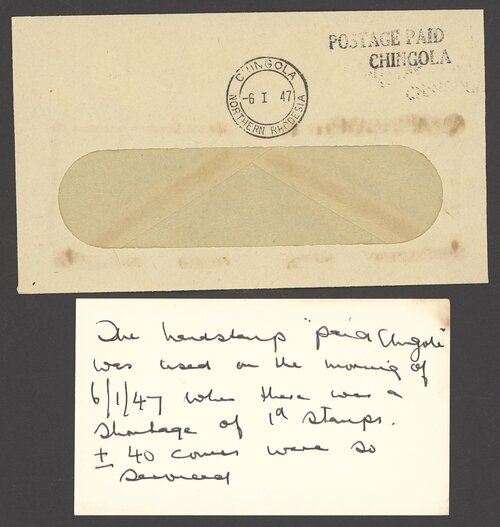 POSTAGE PAID
CHINGOLA
CHINGOLA
-6 I 47
NORTHERN RHODESIA
The handstamp "paid Chingola"
was used on the morning of
6/1/47 when there was a
shortage of 1d stamps.
± 40 covers were so
serviced